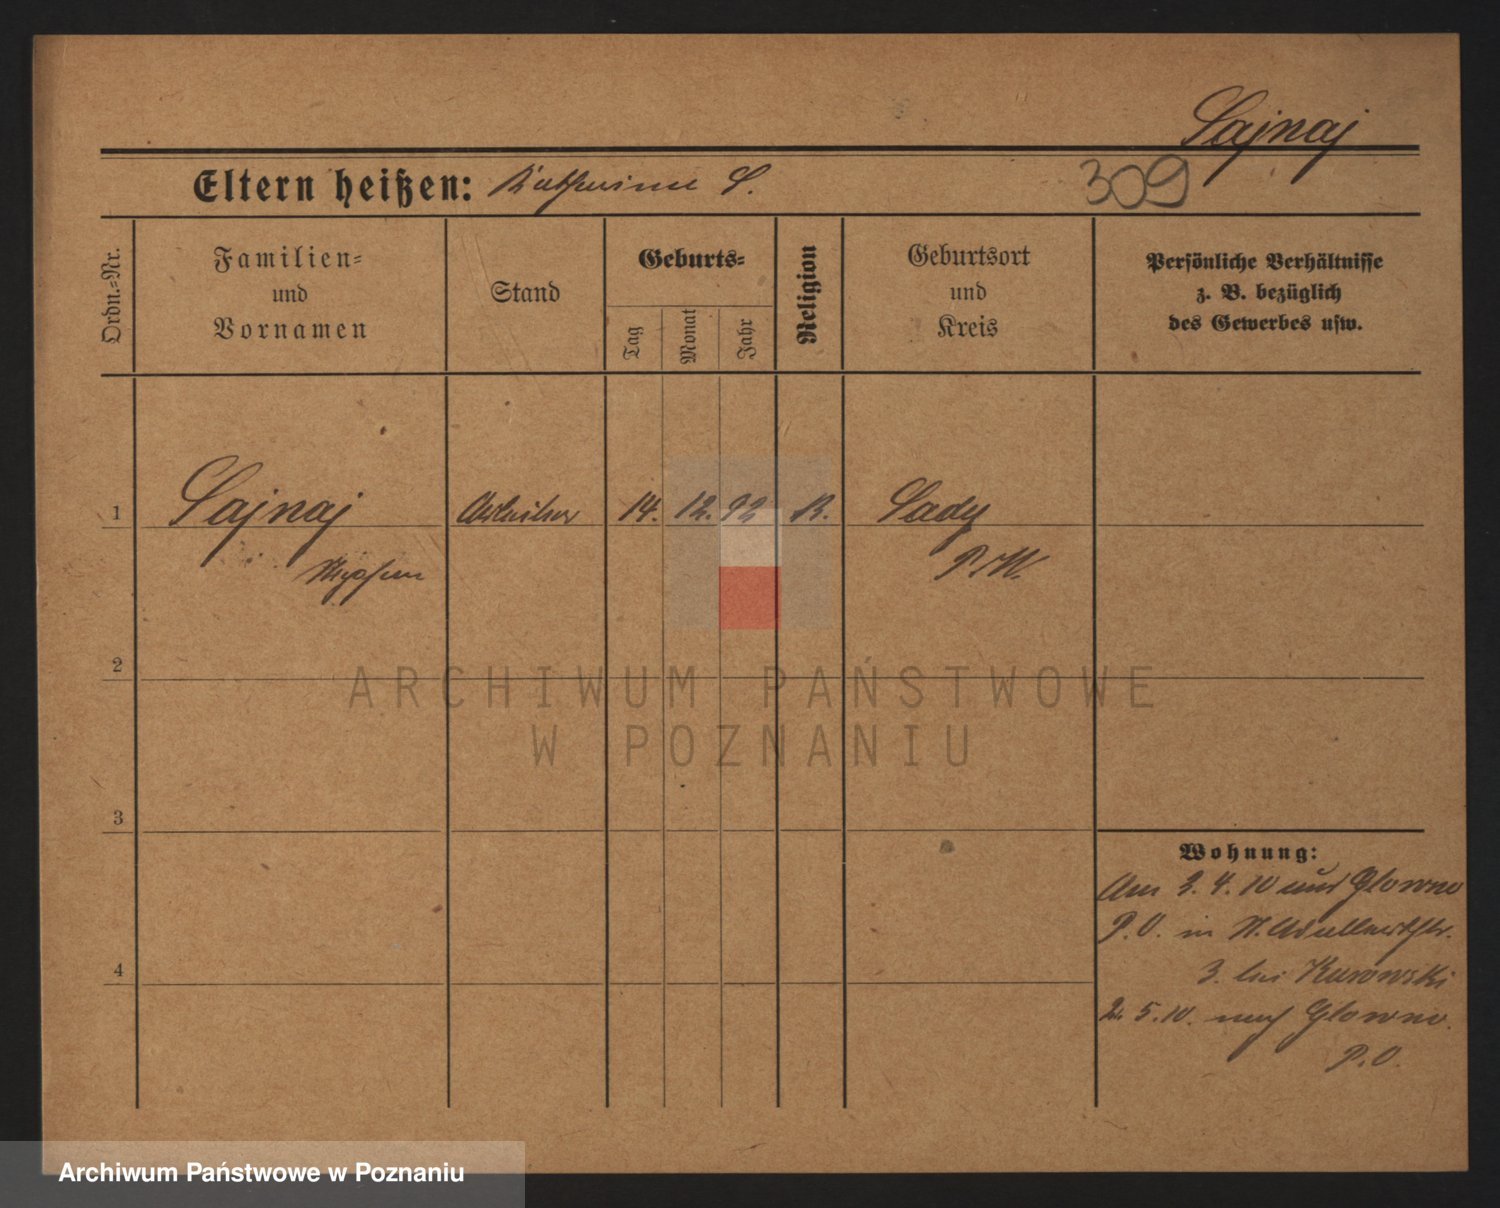 Sajnaj
Eltern heißen: Katharina S. 309
Ordn.-Nr.
Familien-
und
Vornamen
Stand
Geburts-
Tag
Monat
Jahr
Religion
Geburtsort
und
Kreis
Persönliche Verhältnisse
z. B. bezüglich
des Gewerbes usw.
1 Sajnaj Arbeiter 14. 12. 92 K. Sady
Stephan P. W.
2
ARCHIWUM PAŃSTWOWE
W POZNANIU
3
Wohnung:
Am 3. 4. 10 aus Glowno
P. O. in
3. bei Kurowski
4
2. 5. 10. nach Glowno.
P. O.
Archiwum Państwowe w Poznaniu